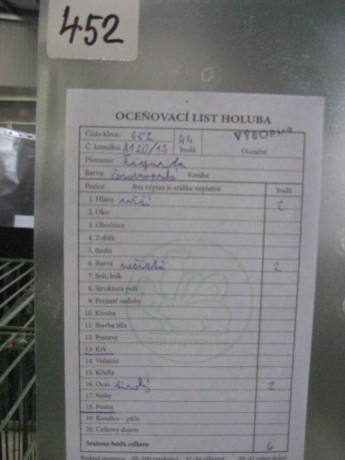 452
OCEŇOVACÍ LIST HOLUBA
Číslo klece: 452 44 bodů VÝBORNÁ
Č. kroužku: 1120/13 Ocenění
Plemeno:
Barva Kresba:
Pozice: Bez výpisu je srážka neplatná bodů
1. Hlava 2
2. Oko
3. Obočnice
4. Zobák
5. Hrdlo
6. Barva nečistá 2
7. Svit, lesk
8. Struktura peří
9. Pernaté ozdoby
10. Kresba
11. Stavba těla
12. Postava
13. Krk
14. Velikost
15. Křídla
16. Ocas široký 2
17. Nohy
18. Postoj
19. Kondice - péče
20. Celkový dojem
Sraženo bodů celkem 6